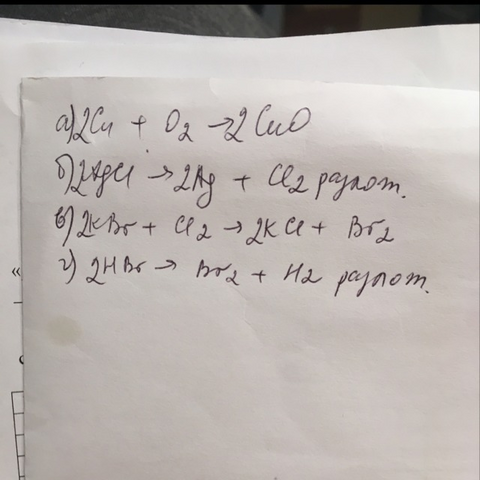 а) 2Cu + O2 → 2CuO
б) 2AgCl → 2Ag + Cl2 разлож.
в) 2KBr + Cl2 → 2KCl + Br2
г) 2HBr → Br2 + H2 разлож.